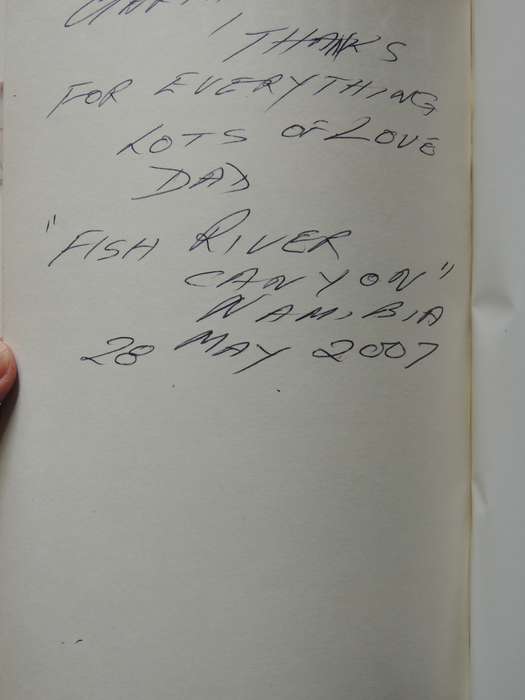 THANKS
FOR EVERYTHING
LOTS OF LOVE
DAD
"FISH RIVER
CANYON"
NAMIBIA
28 MAY 2007